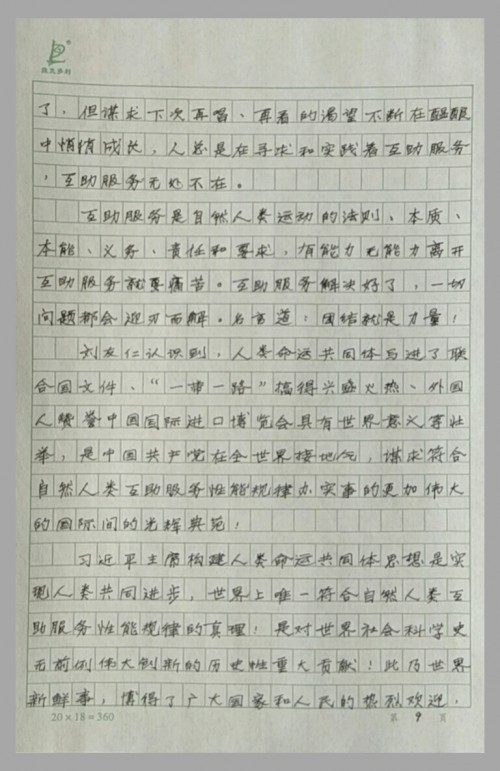 了，但谋求下次再唱、再看的渴望不断在酝酿
中悄悄成长，人总是在寻求和实践着互助服务
，互助服务无处不在。
互助服务是自然人类运动的法则、本质、
本能、义务、责任和要求，有能力无能力离开
互助服务就要痛苦。互助服务解决好了，一切
问题都会迎刃而解。名言道：团结就是力量！
刘友仁认识到，人类命运共同体写进了联
合国文件、“一带一路”搞得兴盛火热、外国
人赞誉中国国际进口博览会具有世界意义等壮
举，是中国共产党在全世界接地气，谋求符合
自然人类互助服务性能规律办实事的更加伟大
的国际间的光辉典范！
习近平主席构建人类命运共同体思想是实
现人类共同进步，世界上唯一符合自然人类互
助服务性能规律的真理！是对世界社会科学史
无前例伟大创新的历史性重大贡献！此乃世界
新鲜事，博得了广大国家和人民的热烈欢迎，
20×18=360 第 9 页